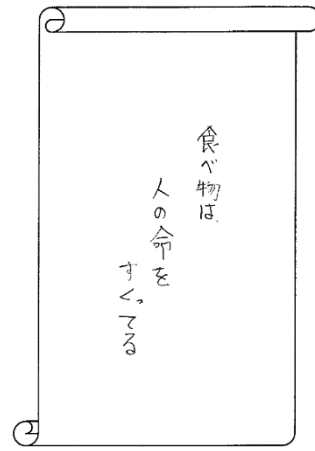 食べ物は
人の命を
すくってる